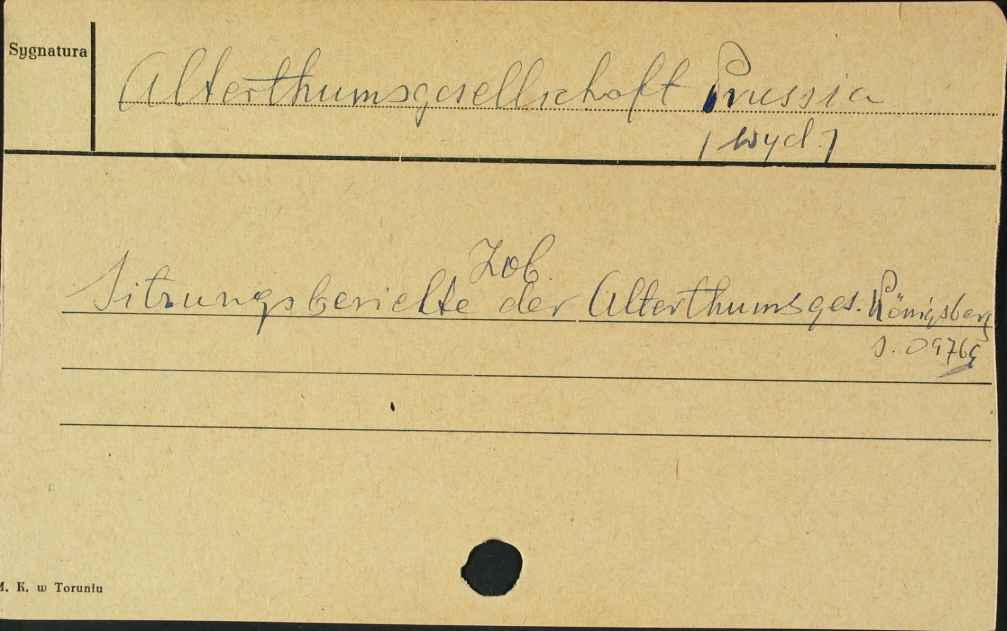 Sygnatura
Alterthumsgesellschaft Prussia
/wyd./
Zob.
Sitzungsberichte der Alterthumsges. Königsberg
s. 09765
M. K. w Toruniu